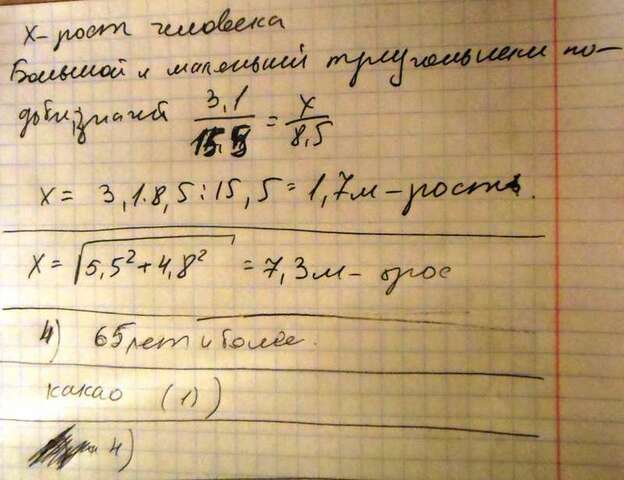 X - рост человека
Большой и маленький треугольники по-
добн, значит 3,1/15,5 = x/8,5
X = 3,1·8,5:15,5 = 1,7м - рост.
X = √5,5²+4,8² = 7,3м - трос
4) 65 лет и более.
какао (1)
4)